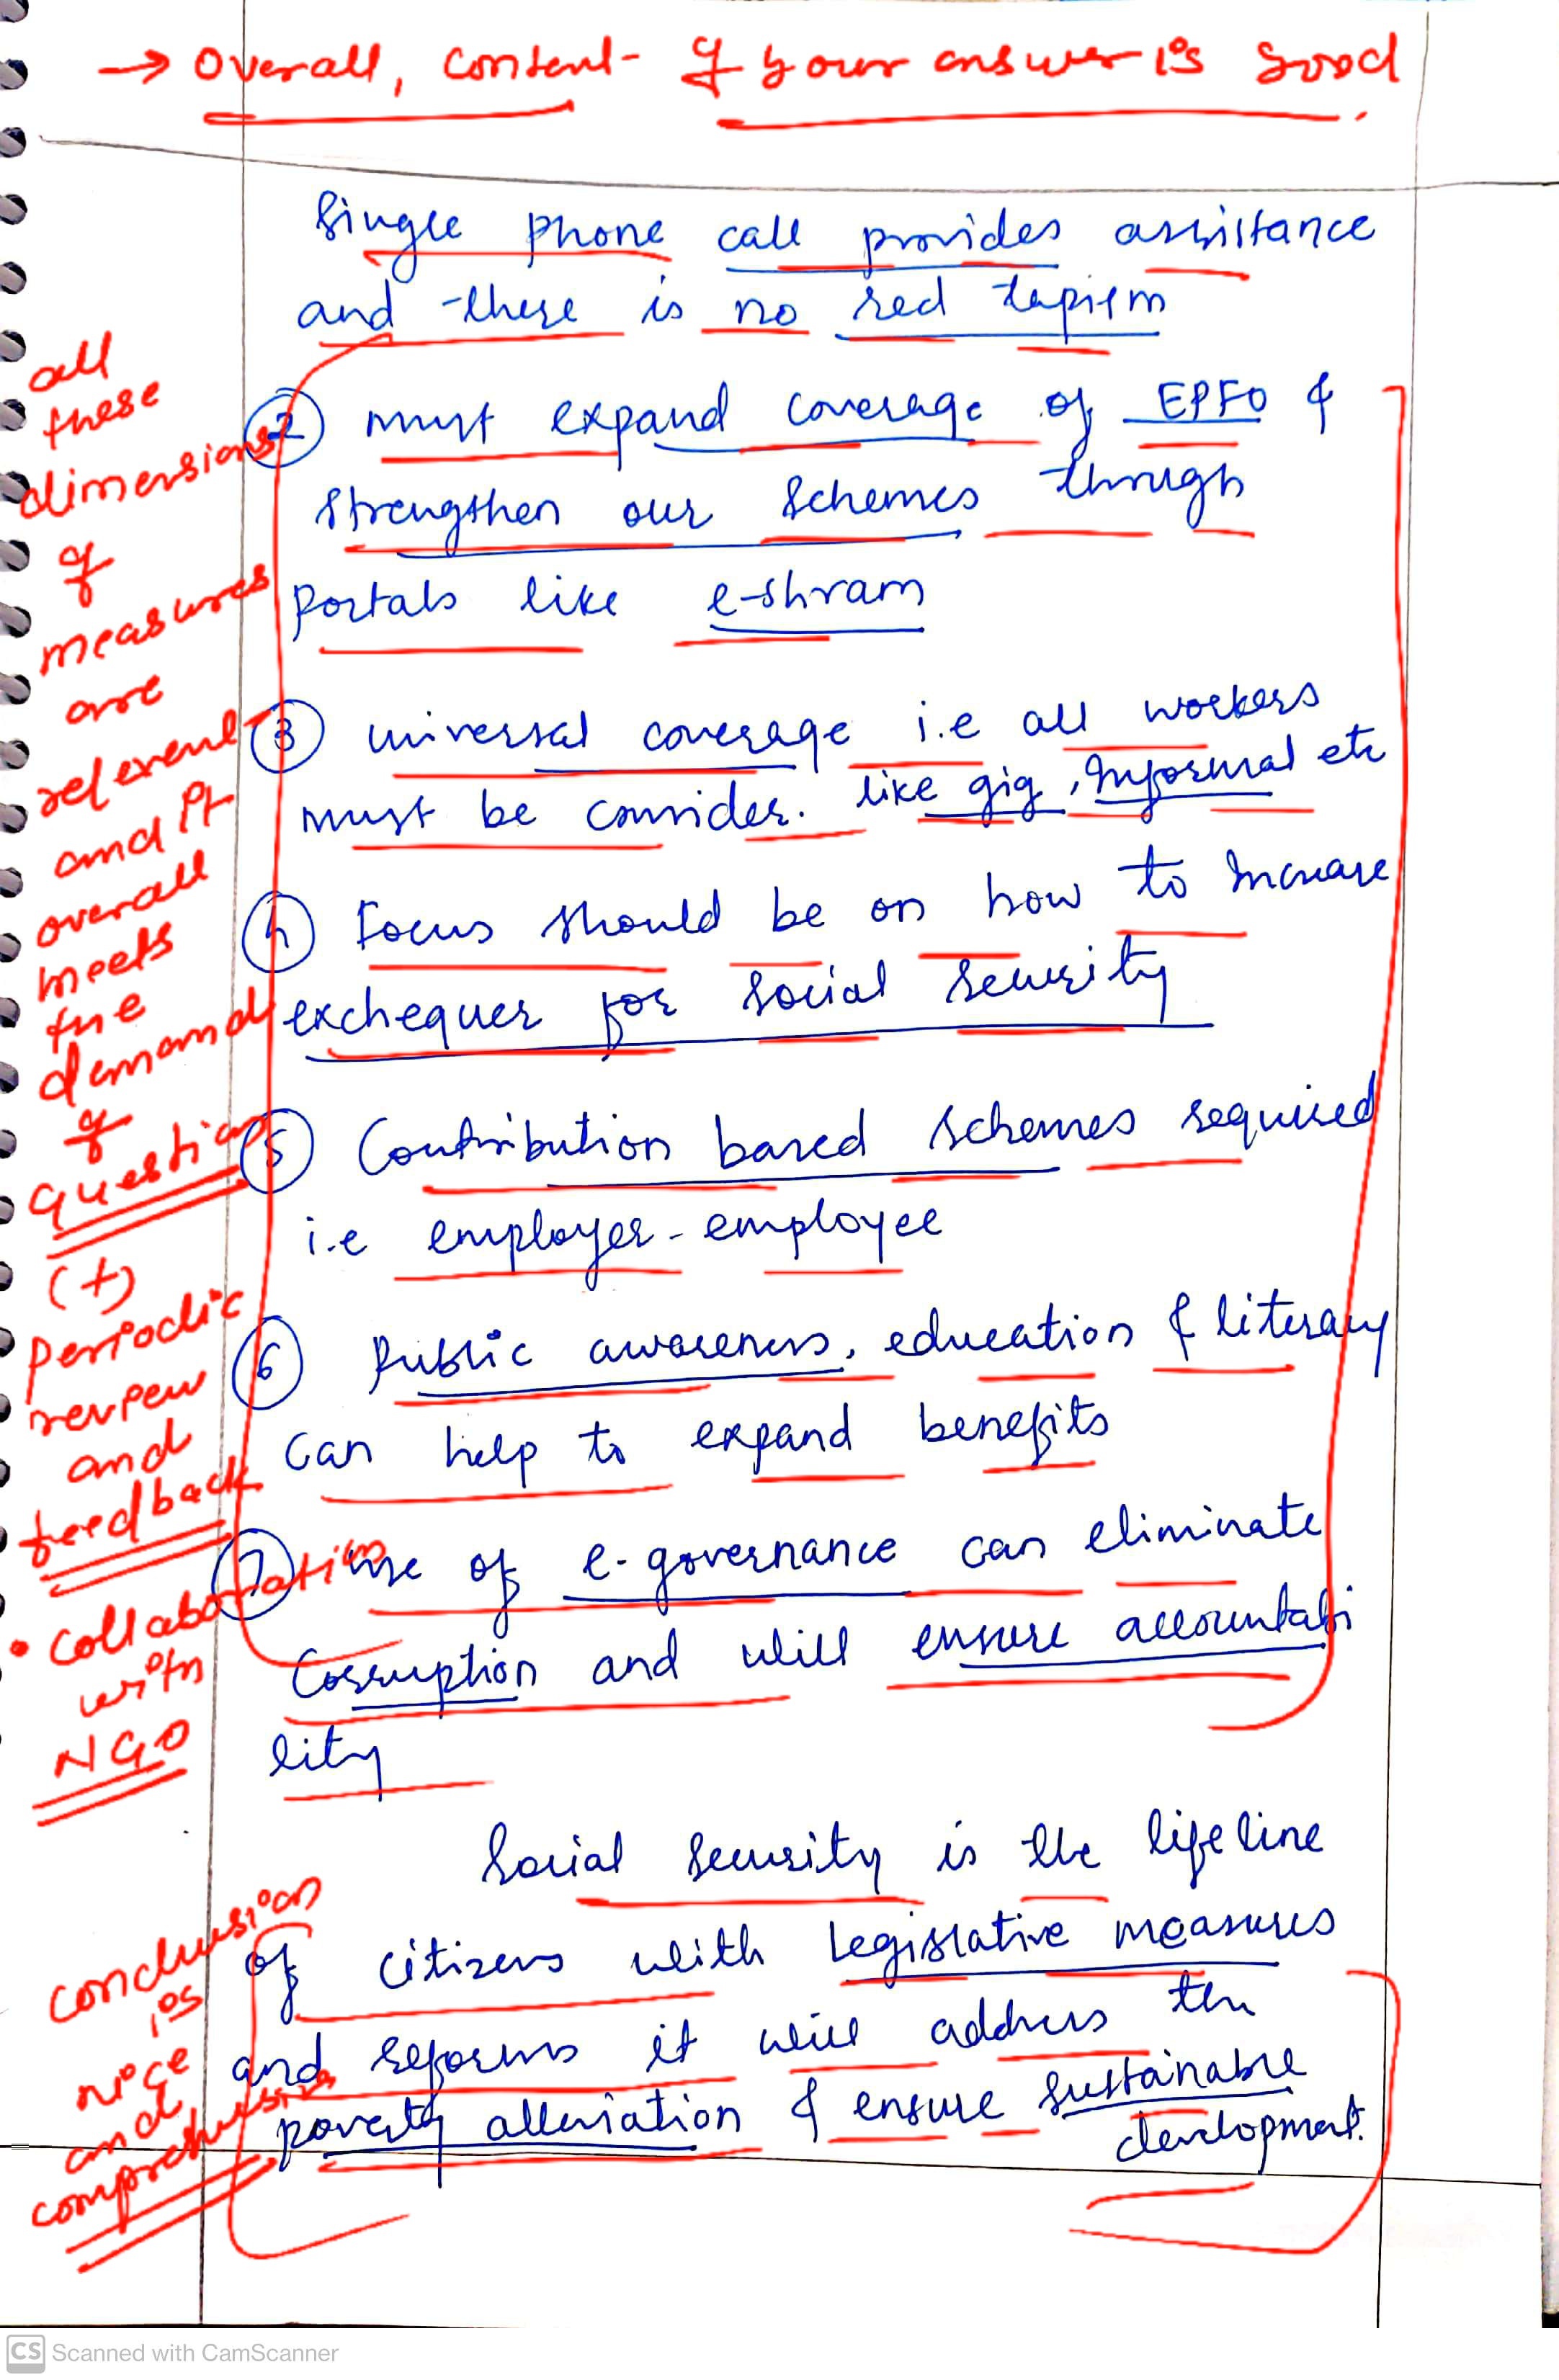 → Overall, content of your answer is good.
Single phone call provides assistance
and there is no red tapism
② must expand coverage of EPFO &
strengthen our schemes through
portals like e-shram
③ universal coverage i.e all workers
must be consider. like gig, informal etc
④ Focus should be on how to increase
exchequer for social security
⑤ Contribution based schemes required
i.e employer-employee
⑥ Public awareness, education & literacy
can help to expand benefits
⑦ use of e-governance can eliminate
corruption and will ensure accountabi
lity
Social security is the lifeline
of citizens with legislative measures
and reforms it will address the
poverty alleviation & ensure sustainable
development.
all
these
dimensions
of
measures
are
relevent
and it
overall
meets
the
demand
of
question
(+)
periodic
review
and
feedback
• collaboration
with
NGO
conclusion
is
nice
and
comprehensive
CS Scanned with CamScanner